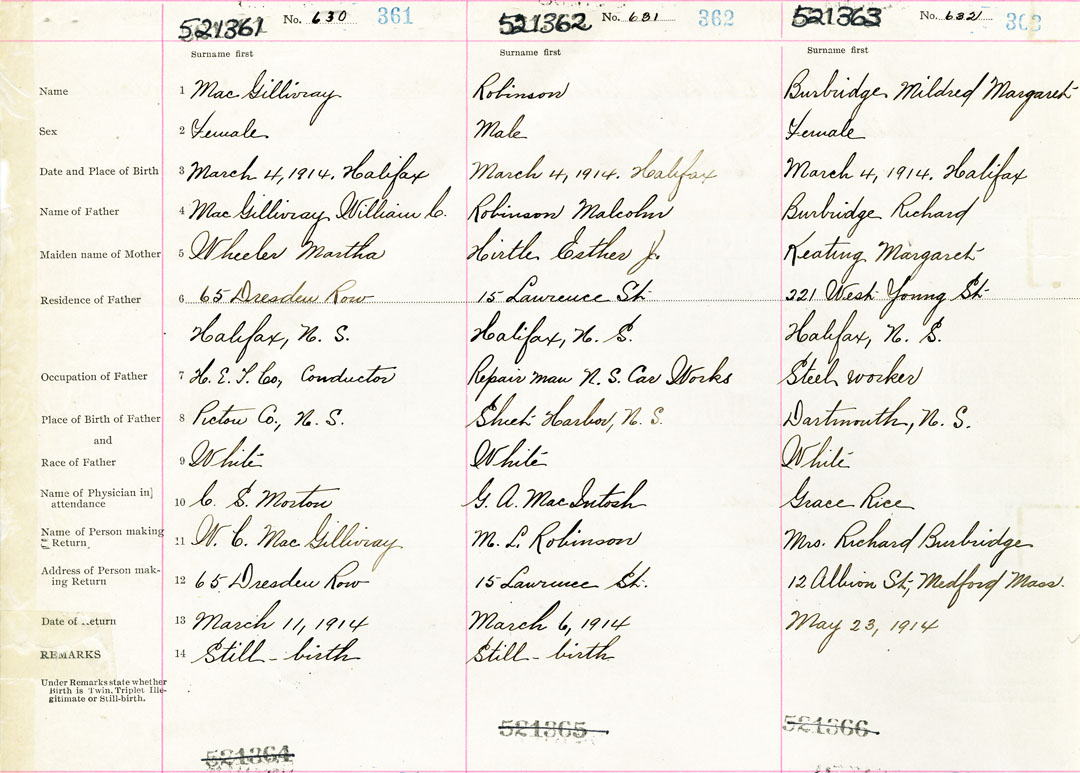 521361 No. 630 361 521362 No. 631 362 521363 No. 632 363
Surname first Surname first Surname first
Name 1 Mac Gillivray Robinson Burbridge Mildred Margaret
Sex 2 Female Male Female
Date and Place of Birth 3 March 4, 1914. Halifax March 4, 1914. Halifax March 4, 1914. Halifax
Name of Father 4 Mac Gillivray William C. Robinson Malcolm Burbridge Richard
Maiden name of Mother 5 Wheeler Martha Hirtle Esther J. Keating Margaret
Residence of Father 6 65 Dresden Row 15 Lawrence St 221 West Young St
Halifax, N. S. Halifax, N. S. Halifax, N. S.
Occupation of Father 7 H. E. T. Co, Conductor Repair man N. S. Car Works Steel worker
Place of Birth of Father 8 Pictou Co., N. S. Sheet Harbor, N. S. Dartmouth, N. S.
and
Race of Father 9 White White White
Name of Physician in
attendance 10 C. S. Morton G. A. MacIntosh Grace Rice
Name of Person making
Return 11 W. C. Mac Gillivray M. L. Robinson Mrs. Richard Burbridge
Address of Person mak-
ing Return 12 65 Dresden Row 15 Lawrence St. 12 Albion St, Medford Mass.
Date of Return 13 March 11, 1914 March 6, 1914 May 23, 1914
REMARKS 14 Still - birth Still - birth
Under Remarks state whether
Birth is Twin, Triplet Ille-
gitimate or Still-birth.
521364 521365 521366